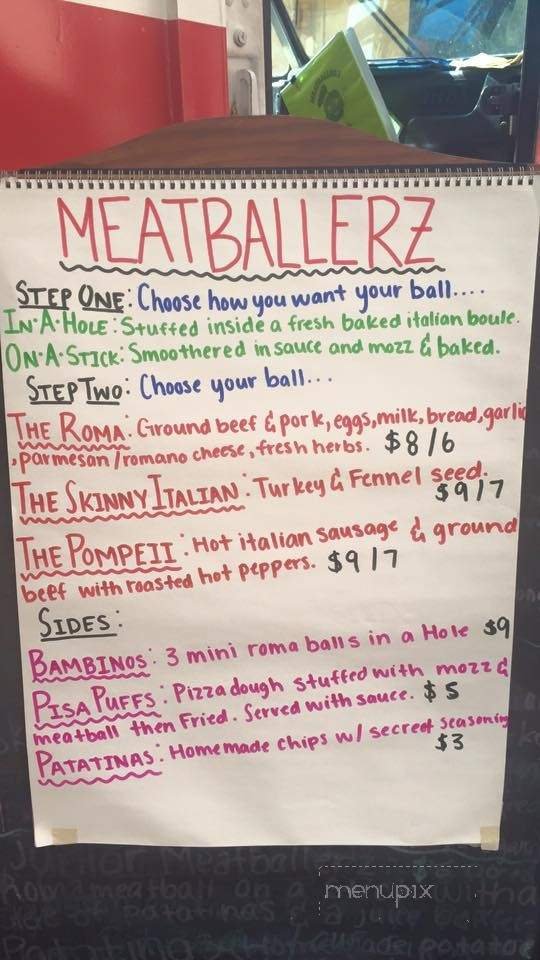 MEATBALLERZ
STEP ONE: Choose how you want your ball....
IN·A·HOLE: Stuffed inside a fresh baked italian boule.
ON·A·STICK: Smoothered in sauce and mozz & baked.
STEP TWO: Choose your ball...
THE ROMA: Ground beef & pork, eggs, milk, bread, garlic
, parmesan/romano cheese, fresh herbs. $8/6
THE SKINNY ITALIAN: Turkey & Fennel seed.
$9/7
THE POMPEII: Hot italian sausage & ground
beef with roasted hot peppers. $9/7
SIDES:
BAMBINOS: 3 mini roma balls in a Hole $9
PISA PUFFS: Pizza dough stuffed with mozz &
meatball then Fried. Served with sauce. $5
PATATINAS: Homemade chips w/ secret seasoning
$3
menupix